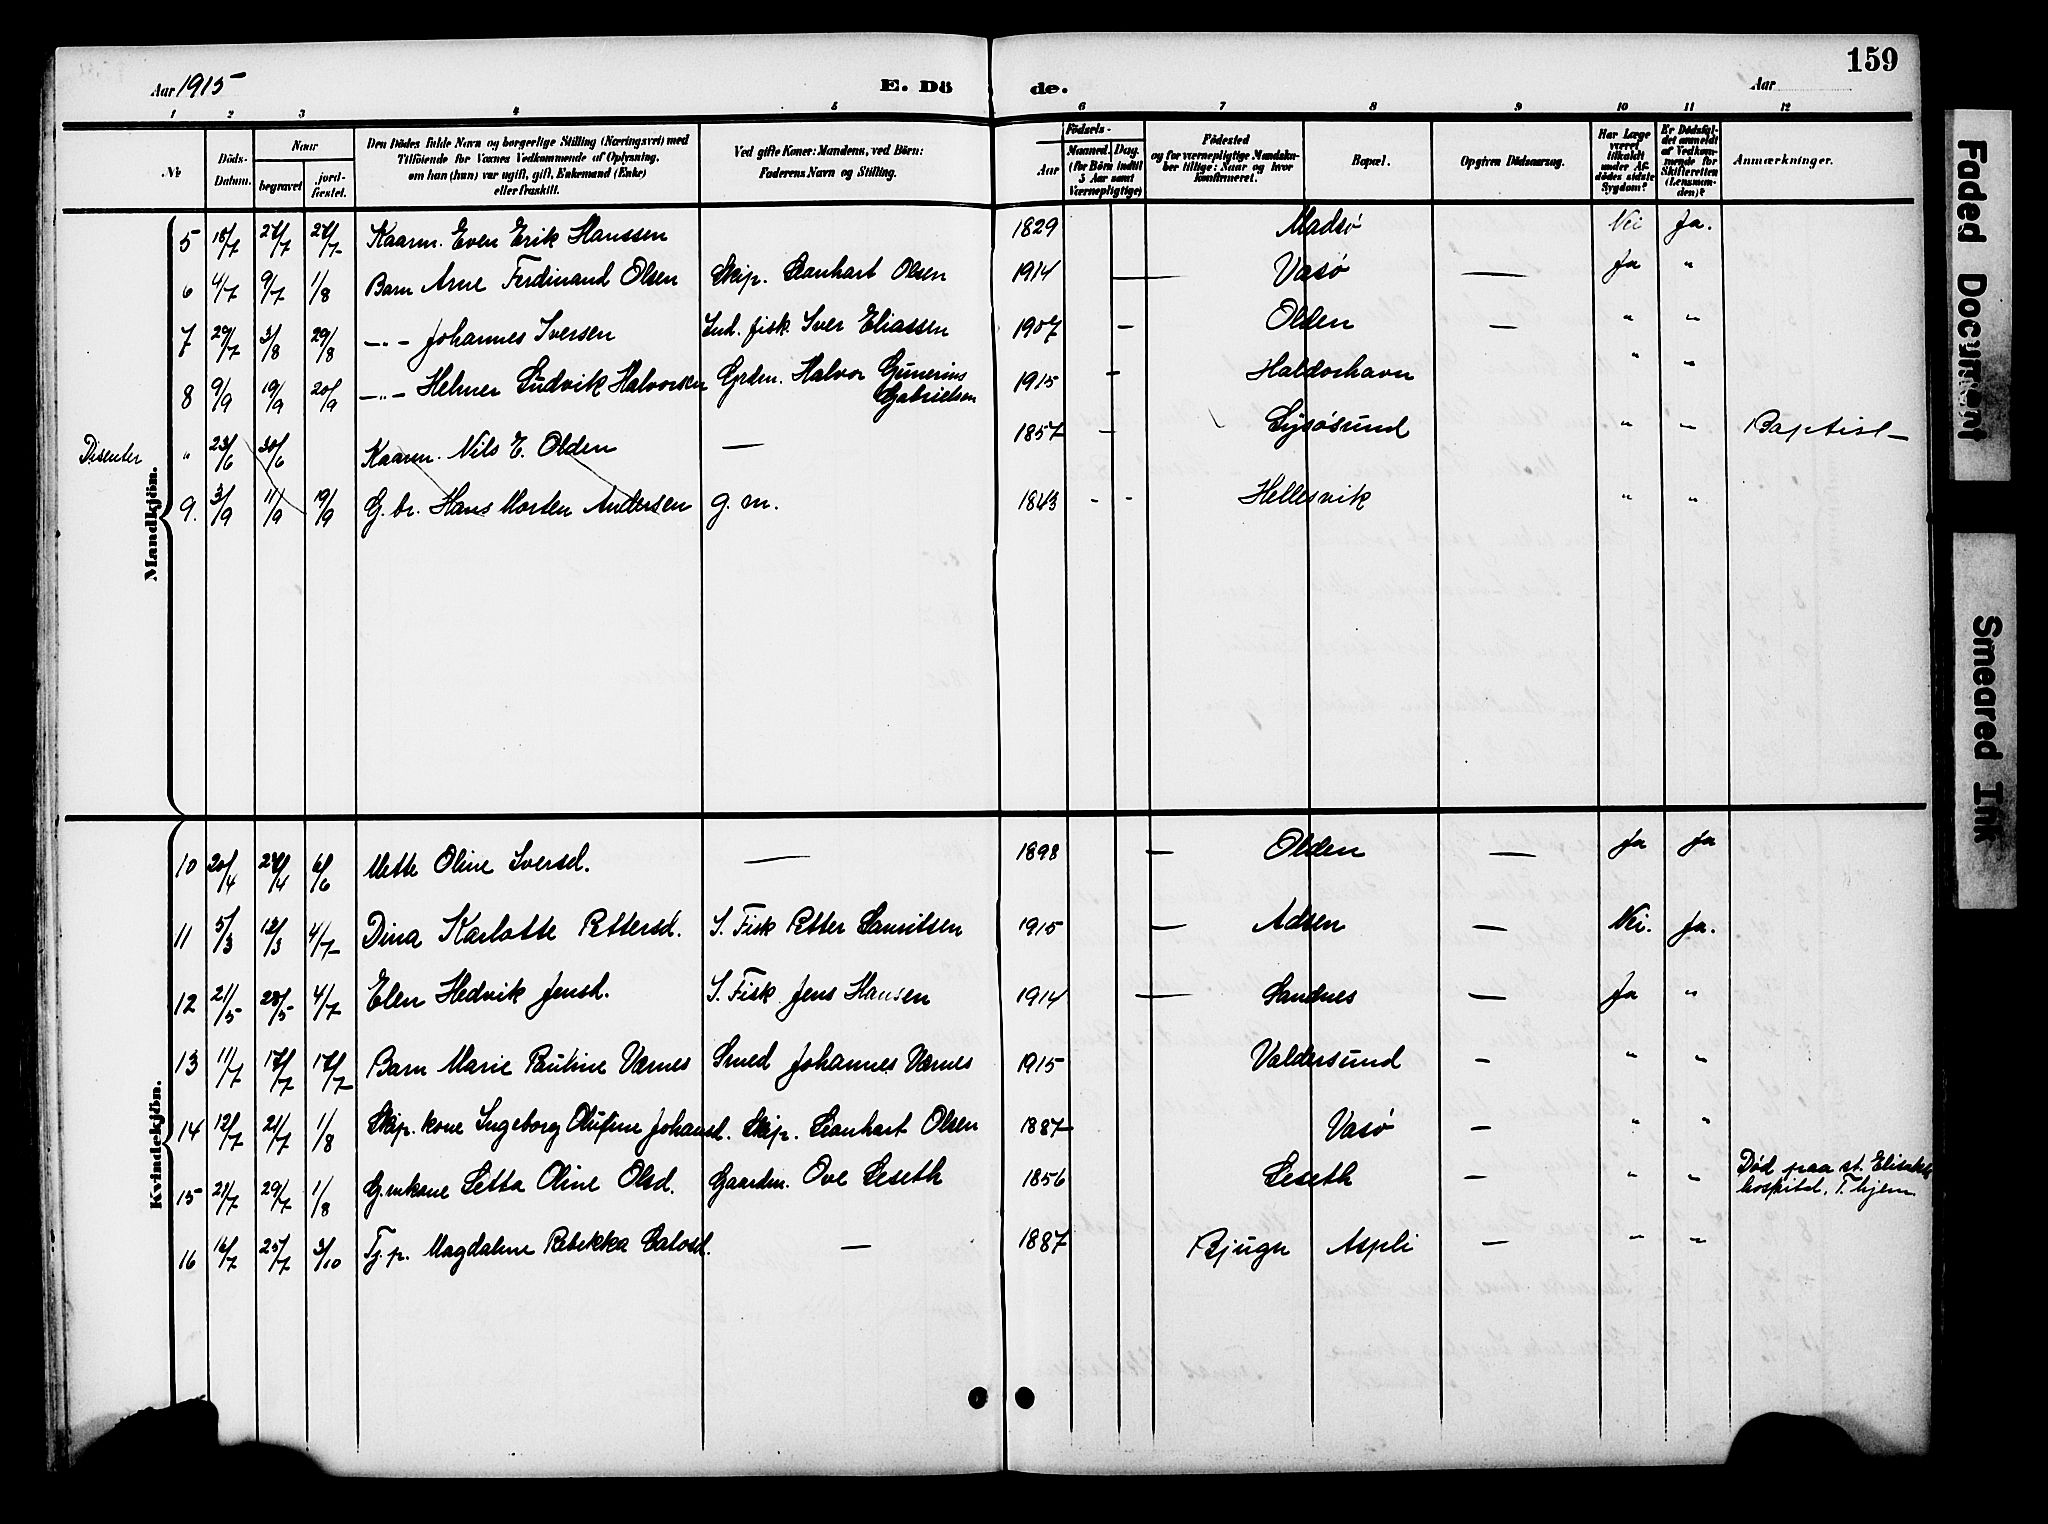 159
Aar 1915
E. Dö
de.
Aar
1 2 3 4 5 6 7 8 9 10 11 12
No
Döds-Datum.
Naar
begravet
jord-fæstet.
Den Dödes fulde Navn og borgerlige Stilling (Næringsvei) med Tilföiende for Voxnes Vedkommende af Oplysning, om han (hun) var ugift, gift, Enkemand (Enke) eller fraskilt.
Ved gifte Koner: Mandens, ved Börn: Faderens Navn og Stilling.
Födsels-
Aar
Maaned. Dag.
(for Börn indtil 5 Aar samt Værnepligtige)
Födested og for værnepligtige Mandskaber tillige: Naar og hvor konfirmeret.
Bopæl.
Opgiven Dödsaarsag.
Har Læge været tilkaldt under Afdödes sidste Sygdom?
Er Dödsfaldet anmeldt af Vedkommende for Skifteretten (Lensmanden)?
Anmærkninger.
Mandkjön.
5 18/7 27/7 27/7 Kaarm. Even Erik Hanssen 1829 Madsø Nei Ja.
6 4/7 9/7 1/8 Barn Arne Ferdinand Olsen Skip. Leonhart Olsen 1914 — Vasø — Ja "
7 29/7 3/8 29/8 -"- Johannes Iversen Ind. fisk. Iver Eliassen 1907 — Olden — " "
8 9/9 19/9 20/9 -"- Helmer Ludvik Halvorsen Grdm. Halvor Gunerius Gabrielsen 1915 — Haldorhavn " "
Disenter " 23/6 30/6 Kaarm. Nils E. Olden — 1857 — Lysøsund " " Baptist
9. 3/9 11/9 19/9 G. br. Hans Morten Andersen g. m. 1843 - - Hellesvik " "
Kvindekjön.
10 20/4 27/4 6/6 Mette Oline Iversd. — 1898 — Olden — Ja Ja
11 5/3 12/3 4/7 Dina Karlotte Pettersd. S. Fisk Petter Lauritsen 1915 — Adsen — Nei. Ja.
12 21/5 28/5 4/7 Elen Hedvik Jensd. S. Fisk Jens Hansen 1914 — Sandnes — Ja "
13 11/7 17/7 17/7 Barn Marie Pauline Værnes Smed Johannes Værnes 1915 Valdersund — " "
14 12/7 21/7 1/8 Skip. kone Ingeborg Olufine Johansd. Skip. Leonhart Olsen 1887 Vasø — " "
15 21/7 29/7 1/8 G.mkone Letta Oline Olsd. Gaardm. Ove Leseth 1856 Leseth — " " Død paa st. Elisabeth hospital, T. hjem
16 16/7 25/7 3/10 Tj. p. Magdalene Rebekka Eatosd. — 1887 Bjugn Aspli — " "
Faded Document
Smeared Ink